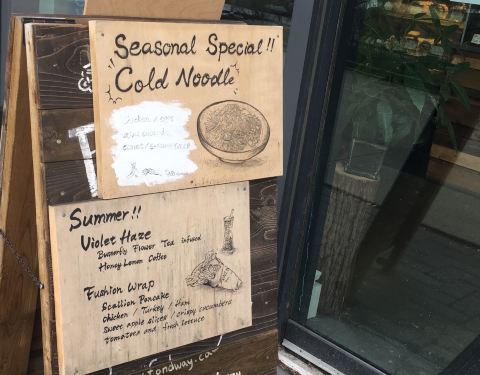 Seasonal Special!!
Cold Noodle
Chicken / egg
carrot / sesame sauce
Summer!!
Violet Haze
Butterfly Flower Tea infused
Honey Lemon Coffee
Fushion Wrap
Scallion Pancake
Chicken / Turkey / Ham
Sweet apple slices / crispy cucumbers
tomatoes and fresh lettuce
fondway.ca